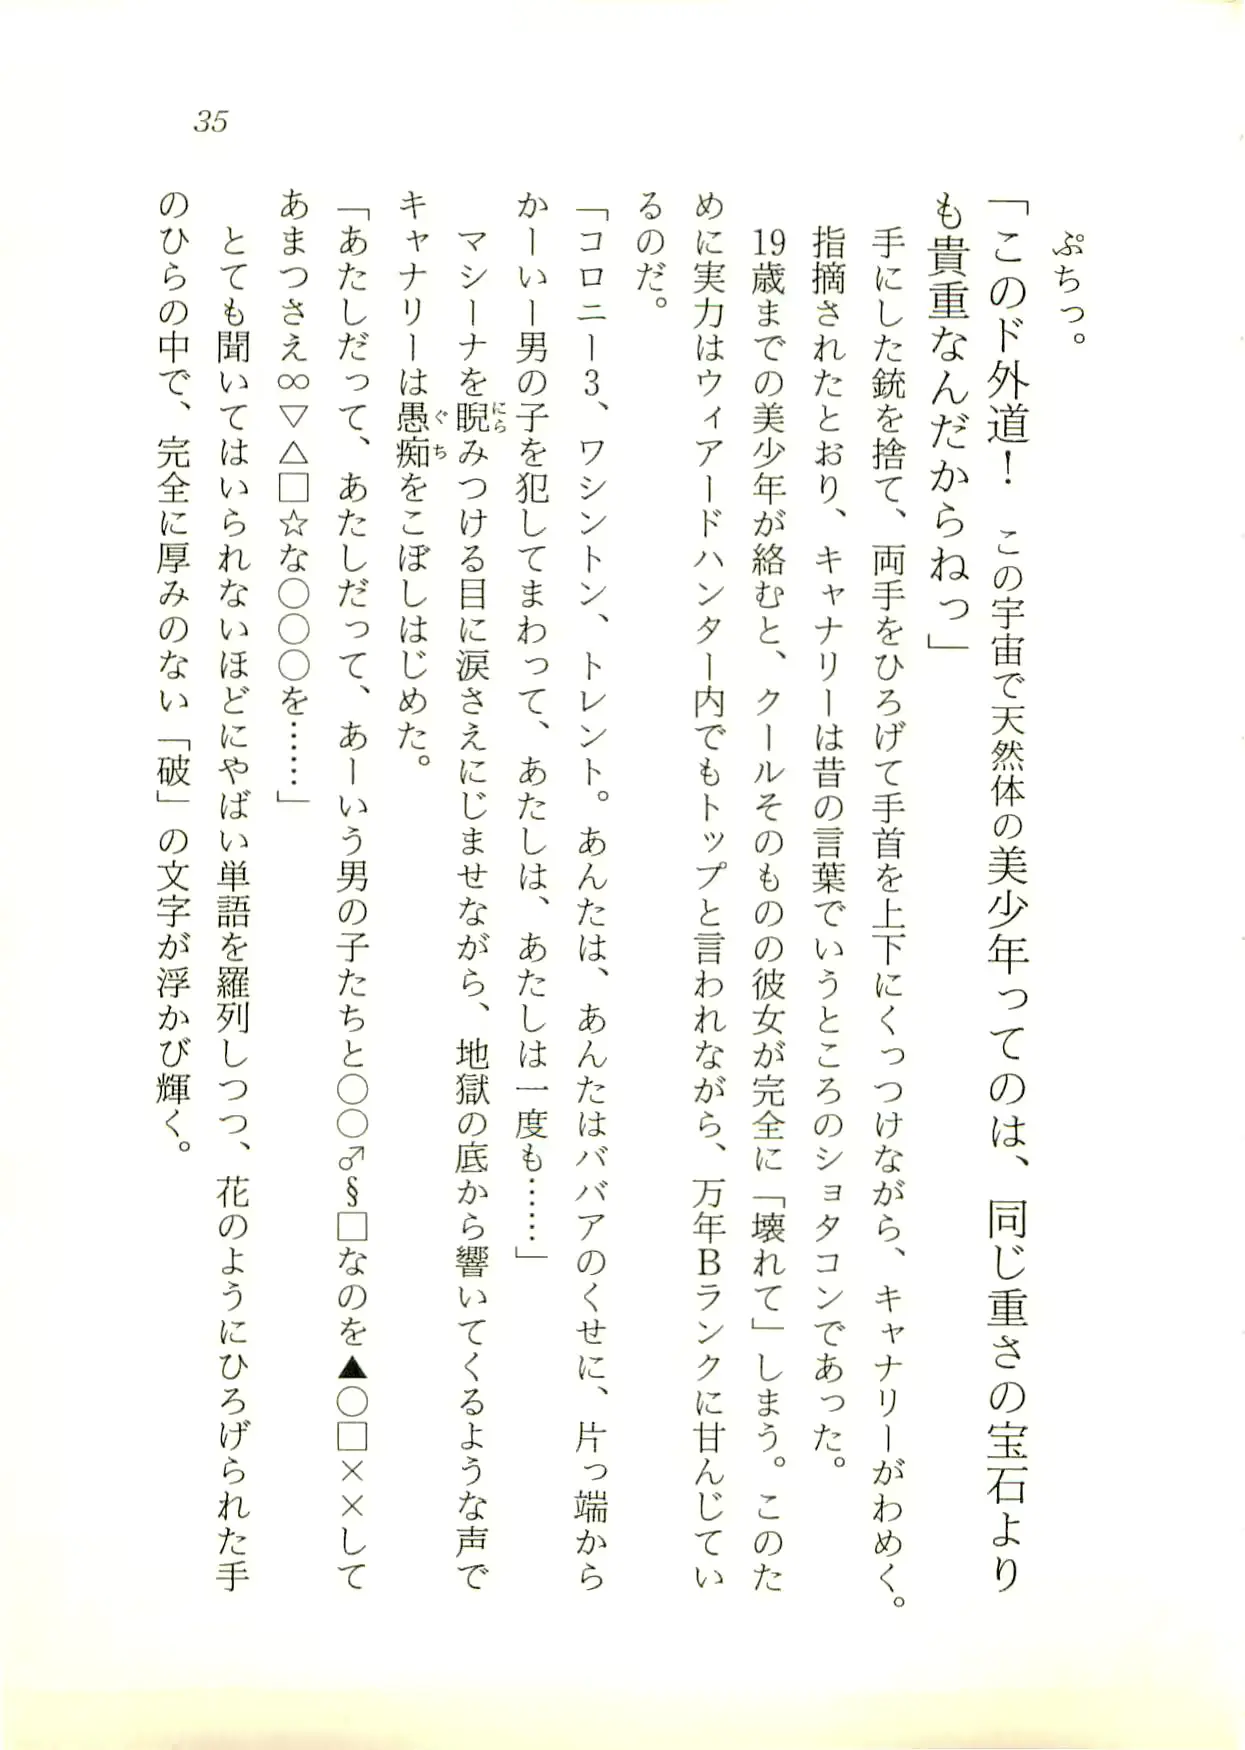 35
ぷちっ。
「このド外道！　この宇宙で天然体の美少年ってのは、同じ重さの宝石より
も貴重なんだからねっ」
手にした銃を捨て、両手をひろげて手首を上下にくっつけながら、キャナリーがわめく。
指摘されたとおり、キャナリーは昔の言葉でいうところのショタコンであった。
19歳までの美少年が絡むと、クールそのものの彼女が完全に「壊れて」しまう。このた
めに実力はウィアードハンター内でもトップと言われながら、万年Bランクに甘んじてい
るのだ。
「コロニー3、ワシントン、トレント。あんたは、あんたはババアのくせに、片っ端から
かーいー男の子を犯してまわって、あたしは、あたしは一度も……」
マシーナを睨みつける目に涙さえにじませながら、地獄の底から響いてくるような声で
キャナリーは愚痴をこぼしはじめた。
「あたしだって、あたしだって、あーいう男の子たちと○○♂§□なのを▲○□××して
あまつさえ∞▽△□☆な○○○を……」
とても聞いてはいられないほどにやばい単語を羅列しつつ、花のようにひろげられた手
のひらの中で、完全に厚みのない「破」の文字が浮かび輝く。